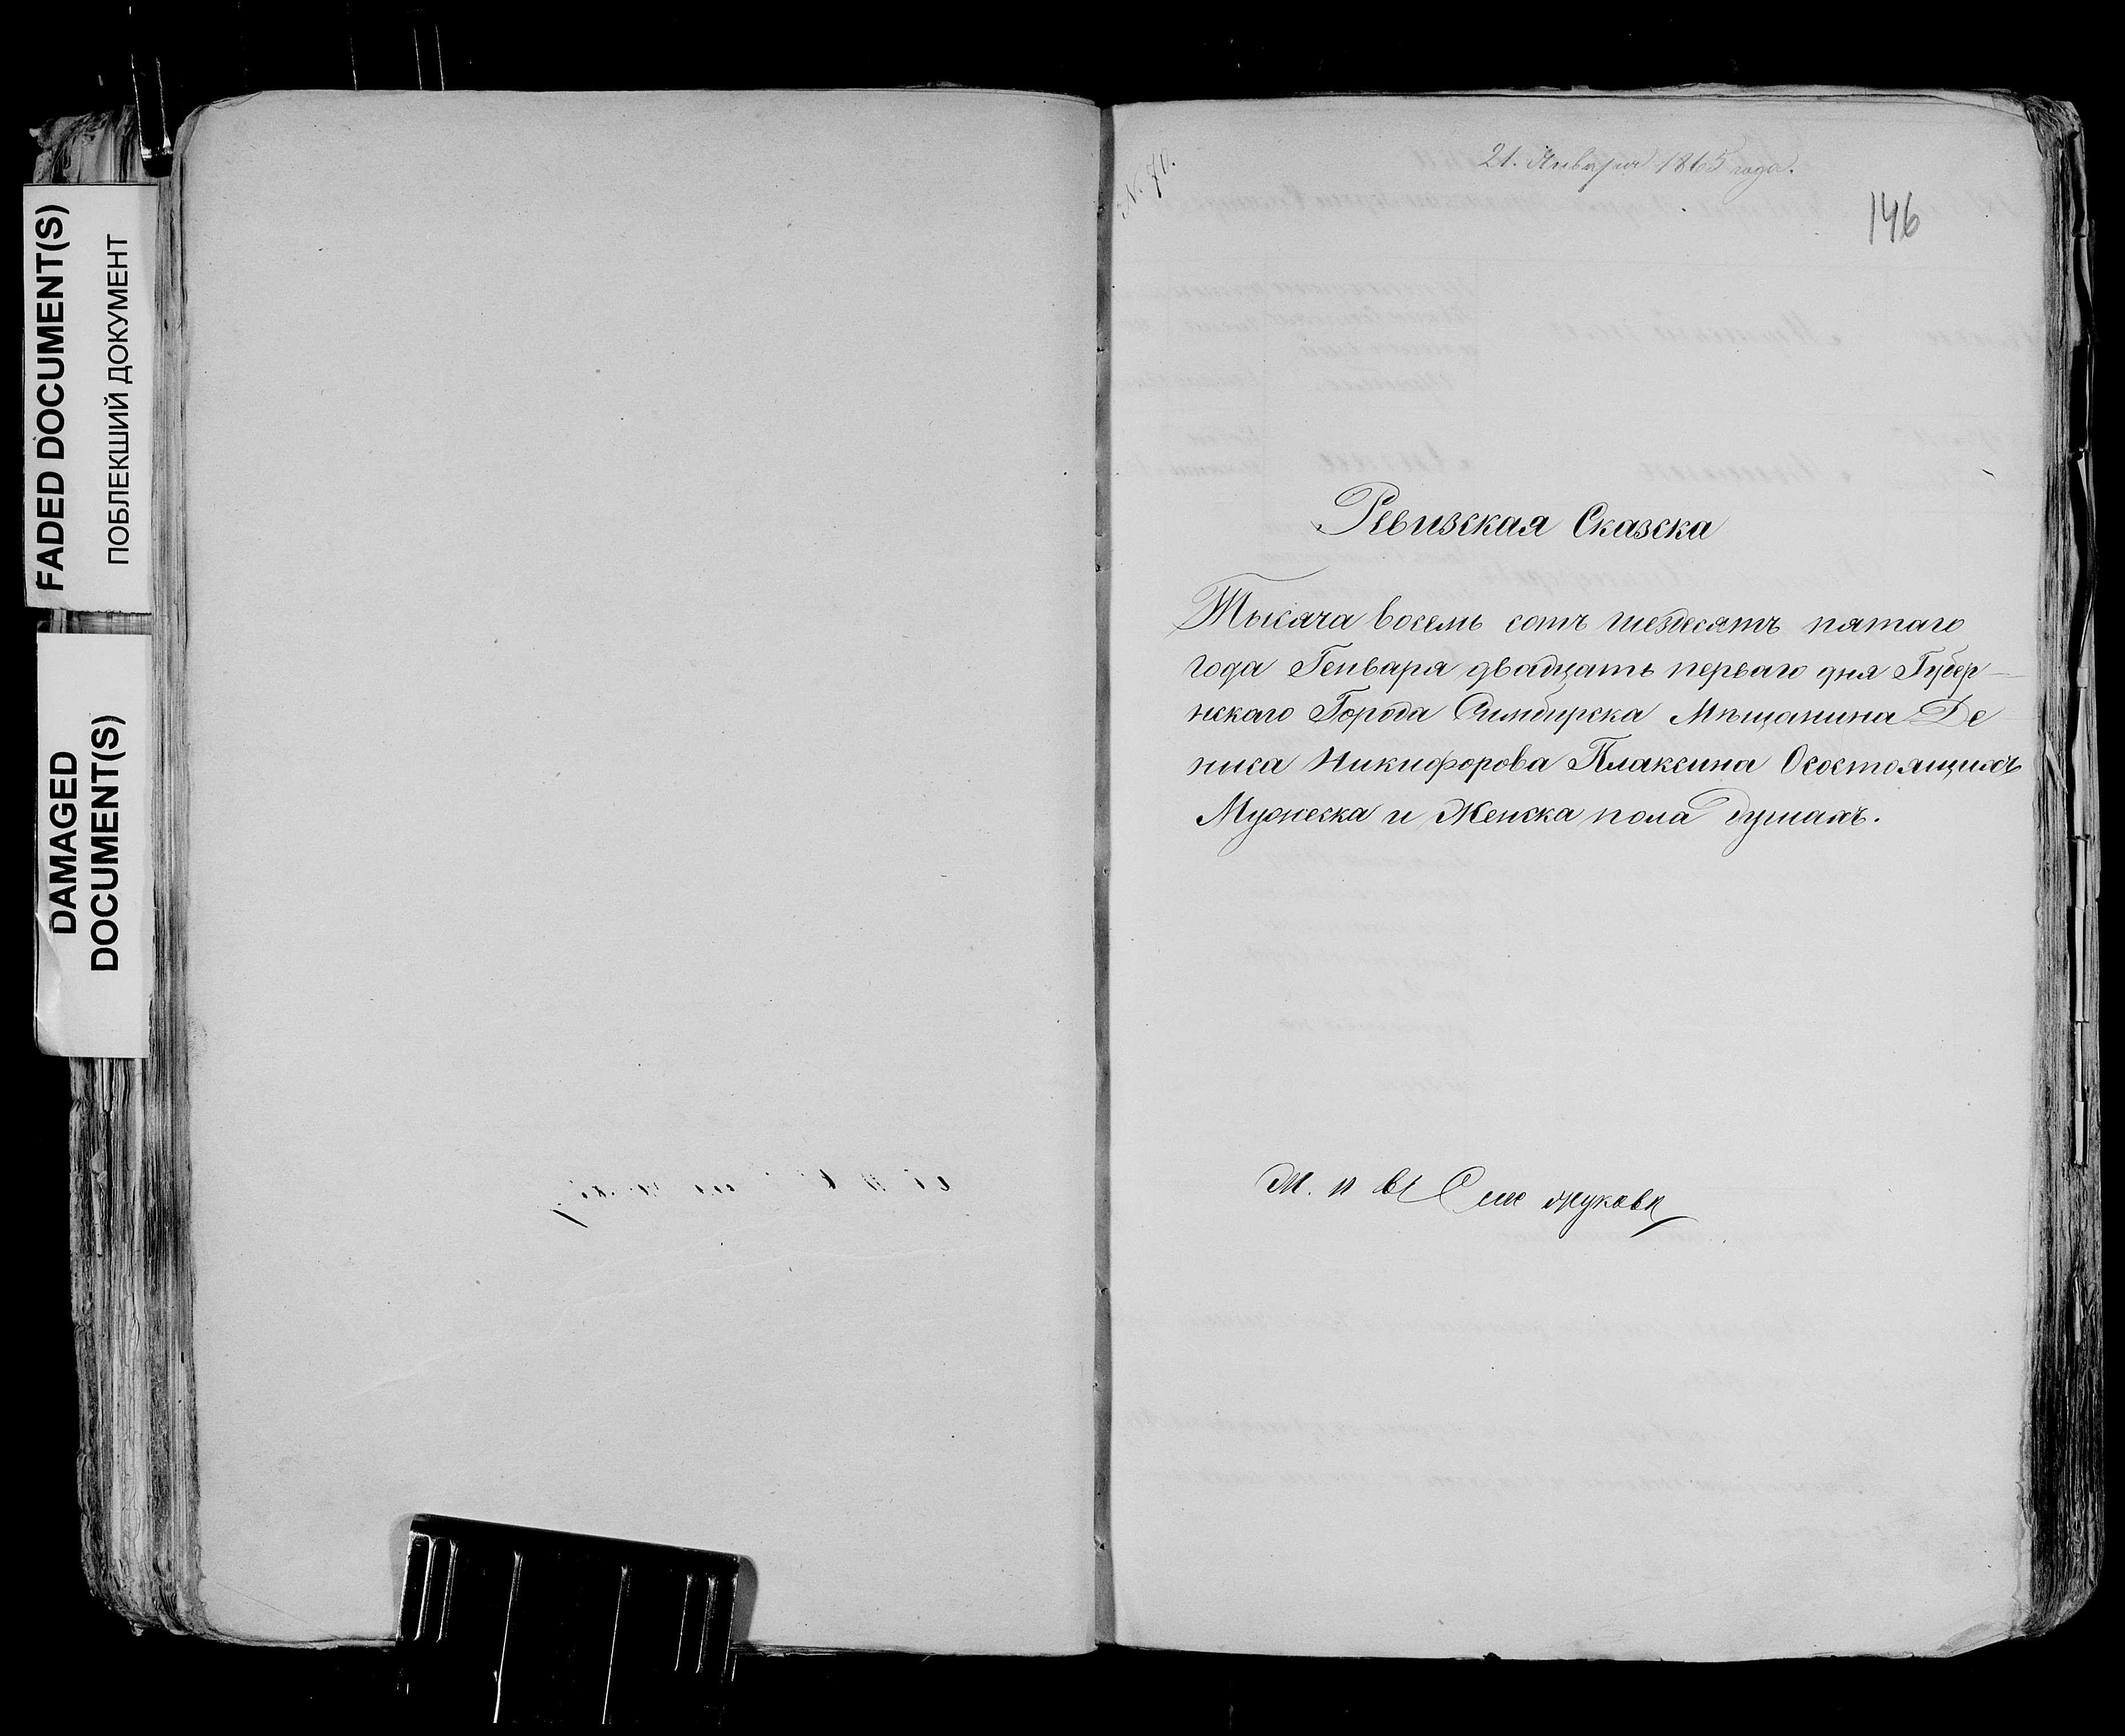 FADED DOCUMENT(S)
ПОБЛЕКШИЙ ДОКУМЕНТ
DAMAGED
DOCUMENT(S)
№ 70.
21. Января 1865 года.
146
Ревизская Сказска
Тысяча восемь сотъ шездесятъ пятаго
года Генваря двадцать перваго дня Губер-
нскаго Города Симбирска Мѣщанина Де
ниса Никифорова Плаксина Осостоящихъ
Мужеска и Женска пола душахъ.
М. п